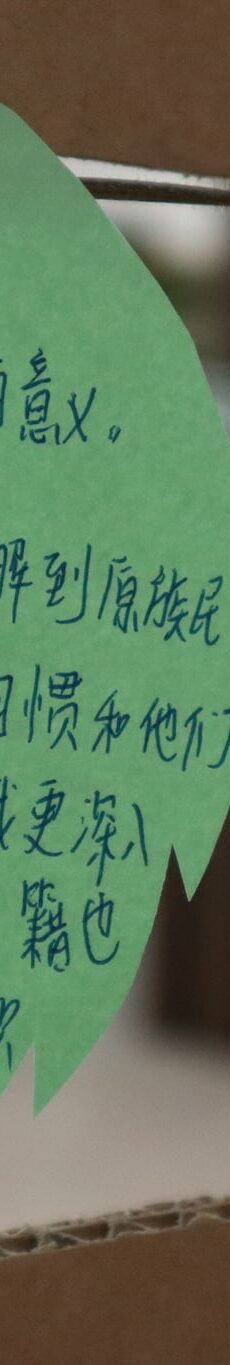 意义。
解到原族民
习惯和他们
我更深入
籍也